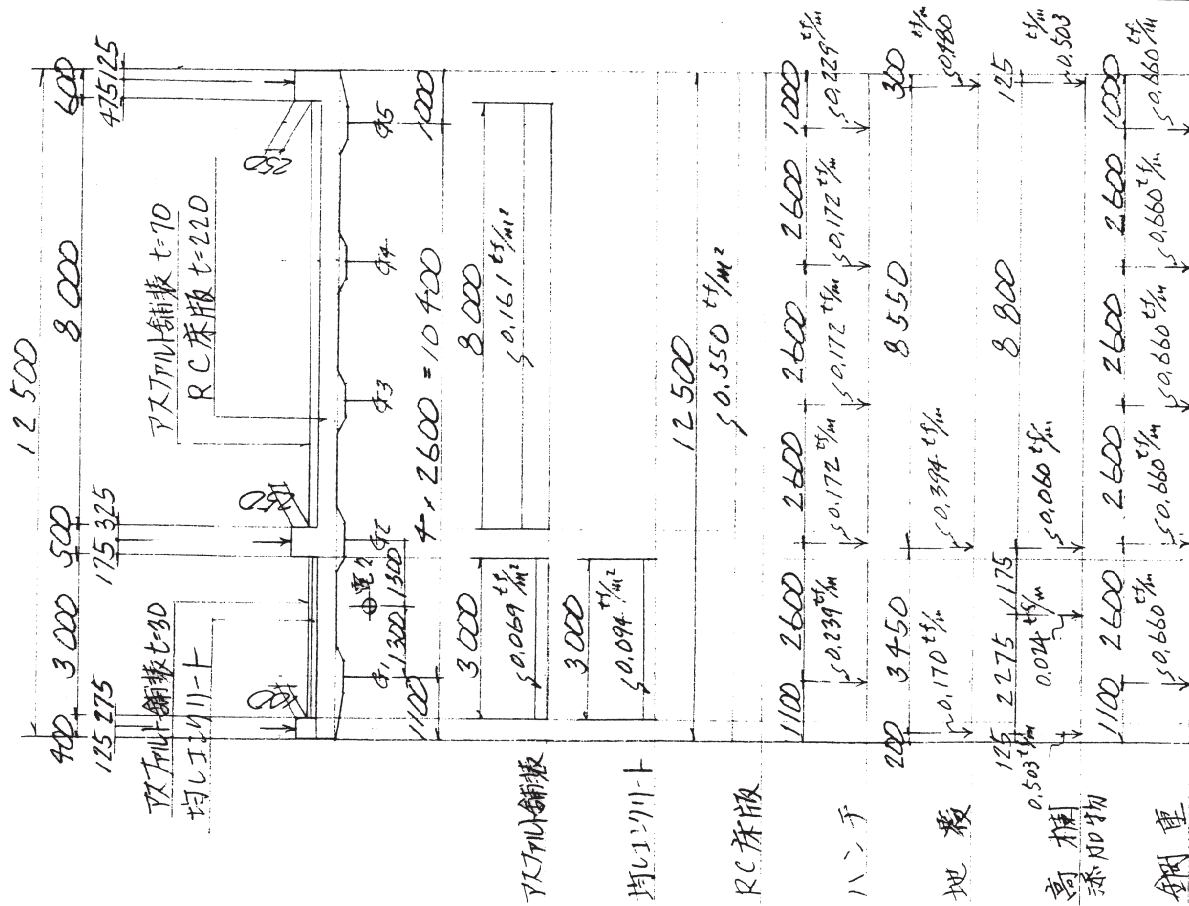 12 500
400 3 000 500 8 000 600
125 275 175 325 475 125
アスファルト舗装 t=30
均しコンクリート
アスファルト舗装 t=70
RC床版 t=220
250 250
G1 G2 G3 G4 G5
1300 1300
1100 4 × 2600 = 10 400 1000
アスファルト舗装
3 000 8 000
0.069 tf/m² 0.161 tf/m²
均しコンクリート
3 000
0.094 tf/m²
RC床版
12 500
0.550 tf/m²
ハンチ
1100 2600 2600 2600 2600 1000
0.239 tf/m 0.172 tf/m 0.172 tf/m 0.172 tf/m 0.229 tf/m
地覆
200 3 450 8 550 300
0.170 tf/m 0.394 tf/m 0.480 tf/m
高欄
添加物
125 2 275 1 175 8 800 125
0.503 tf/m 0.024 tf/m 0.060 tf/m 0.503 tf/m
鋼重
1100 2600 2600 2600 2600 1000
0.660 tf/m 0.660 tf/m 0.660 tf/m 0.660 tf/m 0.660 tf/m